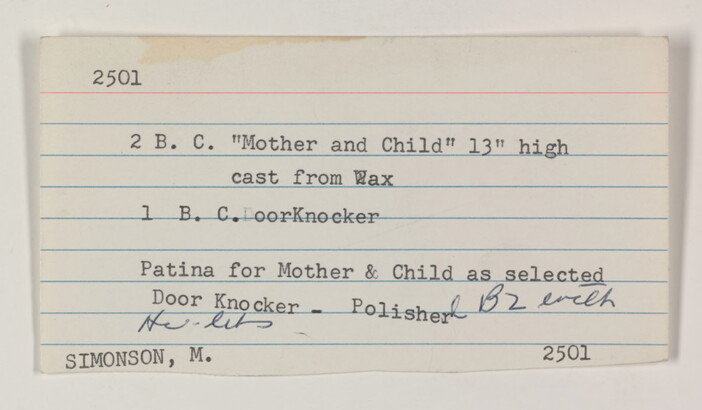 2501
2 B. C. "Mother and Child" 13" high
cast from Wax
1 B. C. DoorKnocker
Patina for Mother & Child as selected
Door Knocker - Polished Bz with
SIMONSON, M. 2501